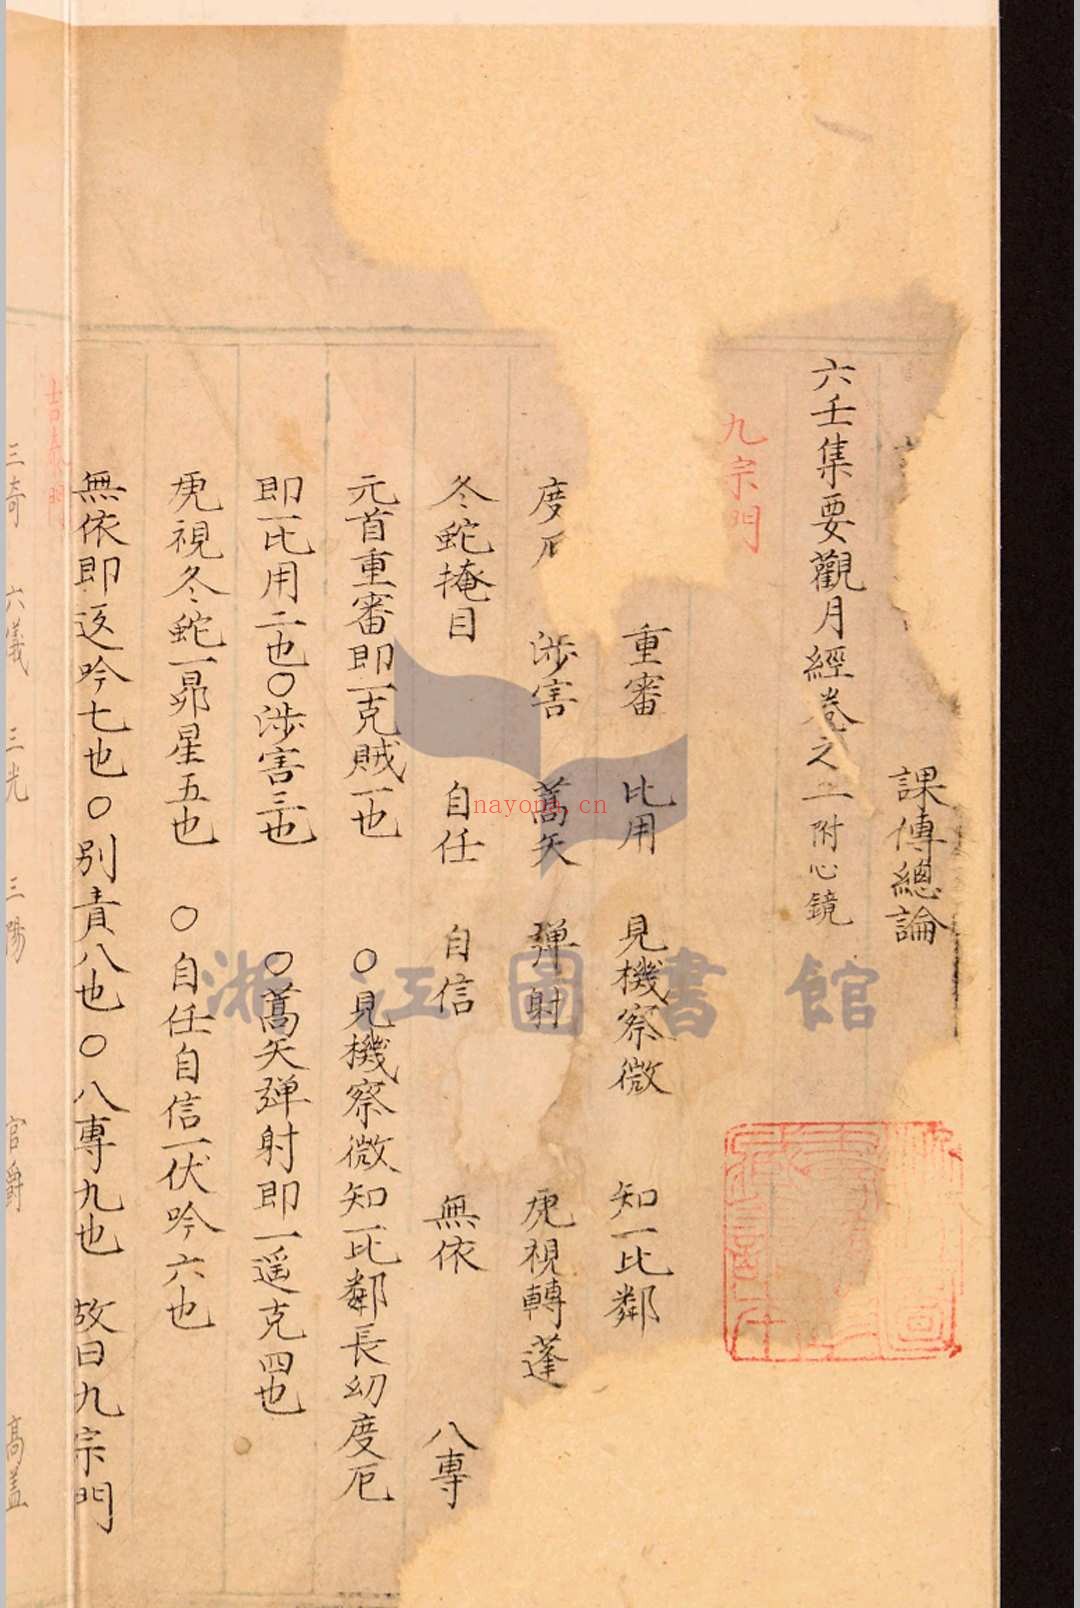 課傳總論
六壬集要觀月經卷之一 附心鏡
九宗門
重審 比用 見機察微 知一比鄰
度厄 涉害 蒿矢 彈射 虎視轉蓬
冬蛇掩目 自任 自信 無依 八專
元首重審即一克賊一也 〇見機察微知一比鄰長幼度厄
即一比用二也〇涉害三也 〇蒿矢彈射即一遥克四也
虎視冬蛇一昴星五也 〇自任自信一伏吟六也
無依即返吟七也〇別責八也〇八專九也 故曰九宗門
三奇 六儀 三光 三陽 官爵 高盖
浙江圖書館
nayona.cn